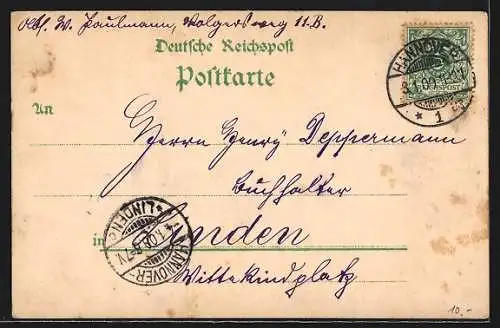 Abs. W. Paulmann, Wolgersweg 11.B.
Deutsche Reichspost
Postkarte
An
Herrn Henry Deppermann
Buchhalter
in Linden
Wittekindplatz
HANNOVER
* 1
HANNOVER-
* LINDEN *
10.-